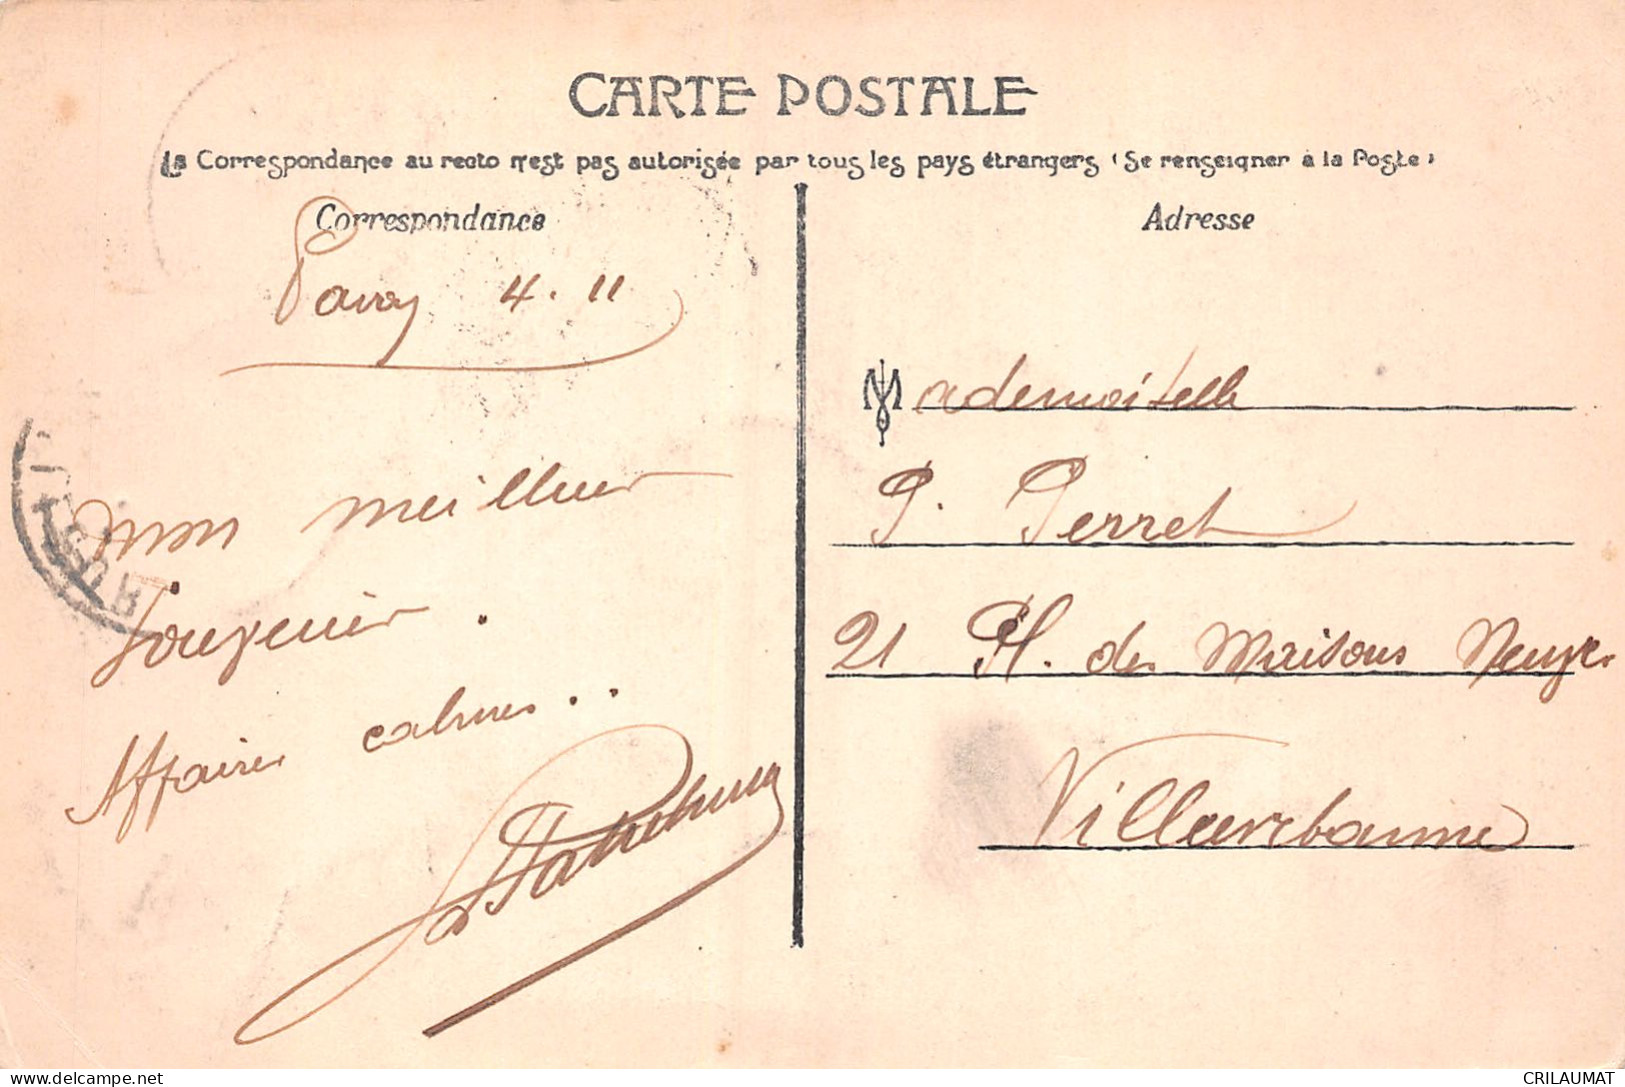 CARTE POSTALE
La Correspondance au recto n'est pas autorisée par tous les pays étrangers (Se renseigner à la Poste)
Correspondance
4.11
mon meilleur
souvenir.
Affaires calmes..
Adresse
Mademoiselle
P. Perret
21 Pl. des Maisons Neuves
Villeurbanne
CRILAUMAT